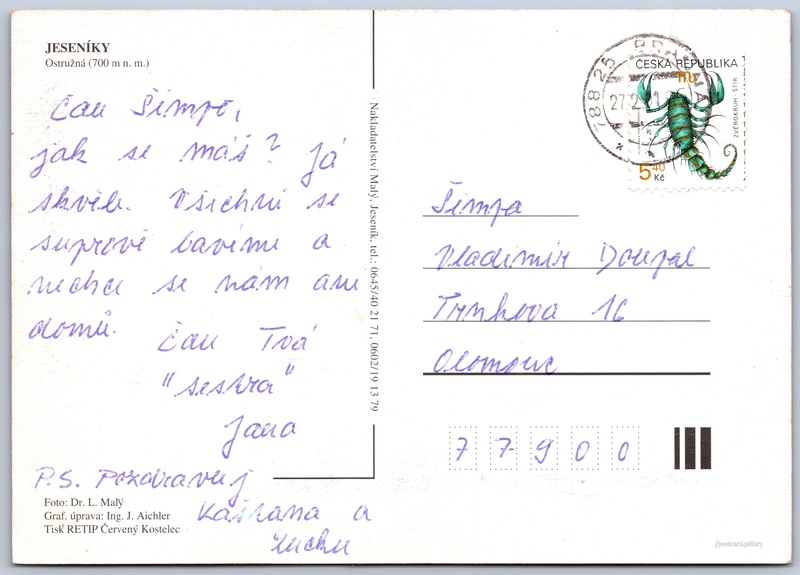 JESENÍKY
Ostružná (700 m n. m.)
Čau Šimpo,
jak se máš? Já
skvěle. Všichni se
suprově bavíme a
nechce se nám ani
domů.
Čau Tvá
"sestra"
Jana
P.S. Pozdravuj
Kaštana a
Foto: Dr. L. Malý
Graf. úprava: Ing. J. Aichler
Tisk RETIP Červený Kostelec
Nakladatelství Malý, Jeseník, tel.: 0645/40 21 71, 0602/19 13 79
788 25 BRANNÁ
27.2.
ČESKÁ REPUBLIKA
ZVĚROKRUH - ŠTÍR
5 40 Kč
Šimpa
Vladimír Doupal
Trnkova 16
Olomouc
77900
postcard.gallery